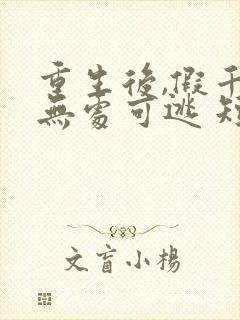 重生後,假千
無處可逃 短
文盲小楊